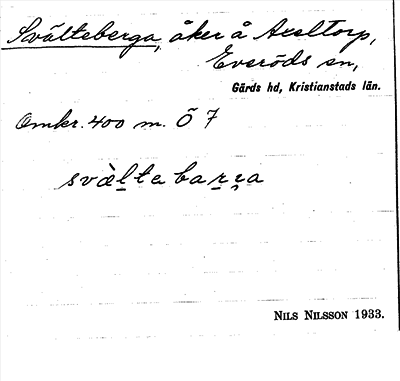 Svälteberga, åker å Axeltorp,
Everöds sn,
Gärds hd, Kristianstads län.
Omkr. 400 m. Ö 7
svàltebarga
NILS NILSSON 1933.